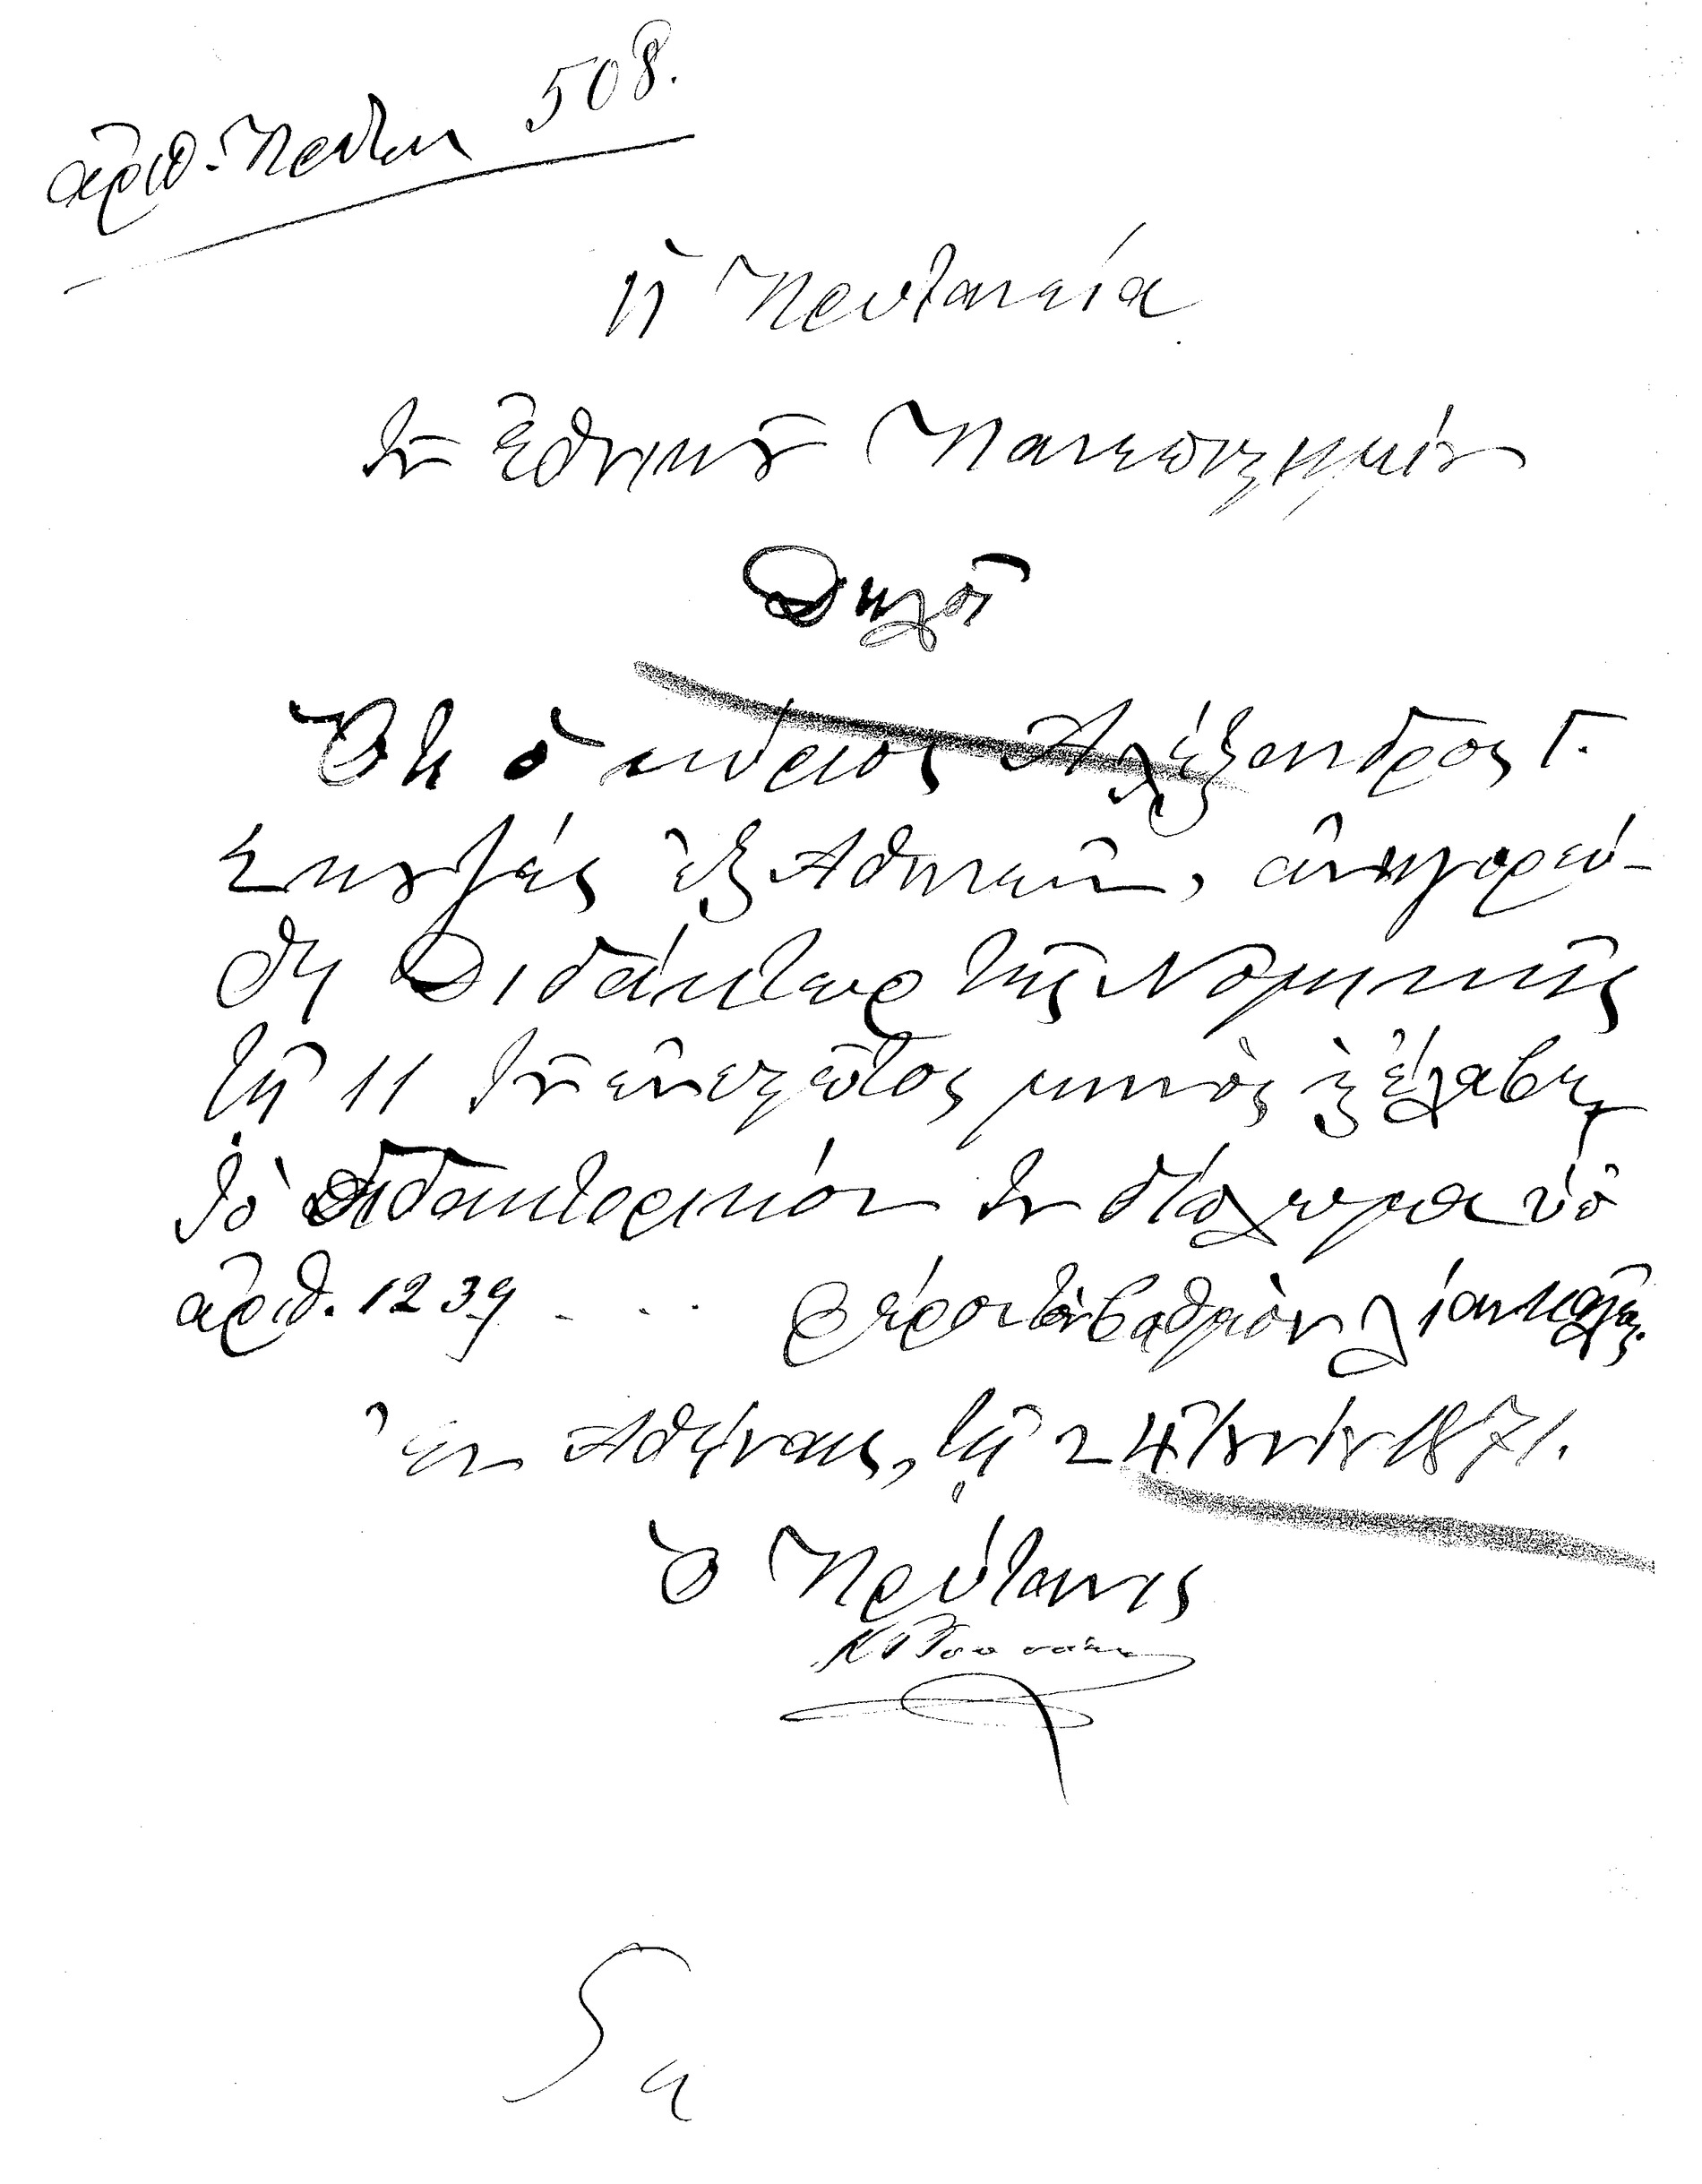 ἀριθ. Πρωτ. 508.
Ἡ Πρυτανεία
τοῦ Ἐθνικοῦ Πανεπιστημίου
Δηλοῖ
Ὅτι ὁ κύριος Ἀλέξανδρος Γ.
Σκουζές ἐξ Ἀθηνῶν, ἀνηγορεύ-
θη Διδάκτωρ τῆς Νομικῆς
τῇ 11 τοῦ ἐνεστῶτος μηνὸς κ ἔλαβε
τὸ διδακτορικόν του δίπλωμα ὑπ
ἀριθ. 1239 . . . φέρον τὸν βαθμὸν λίαν καλῶς.
Ἐν Ἀθήναις, τῇ 24 Ἰουνίου 1871.
Ὁ Πρύτανις